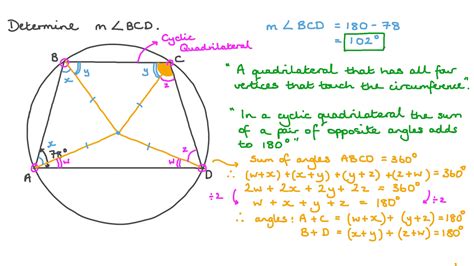 Determine m∠BCD.
Cyclic
Quadrilateral
B
C
x
y
y
z
x
78°
w
z
w
A
D
m∠BCD = 180 - 78
= 102°
"A quadrilateral that has all four
vertices that touch the circumference."
"In a cyclic quadrilateral the sum
of a pair of opposite angles adds
to 180°"
Sum of angles ABCD = 360°
∴ (w+x)+(x+y)+(y+z)+(z+w)=360°
÷2 2w + 2x + 2y + 2z = 360° ÷2
w + x + y + z = 180°
∴ angles: A + C = (w+x) + (y+z)=180°
B + D = (x+y) + (z+w)=180°